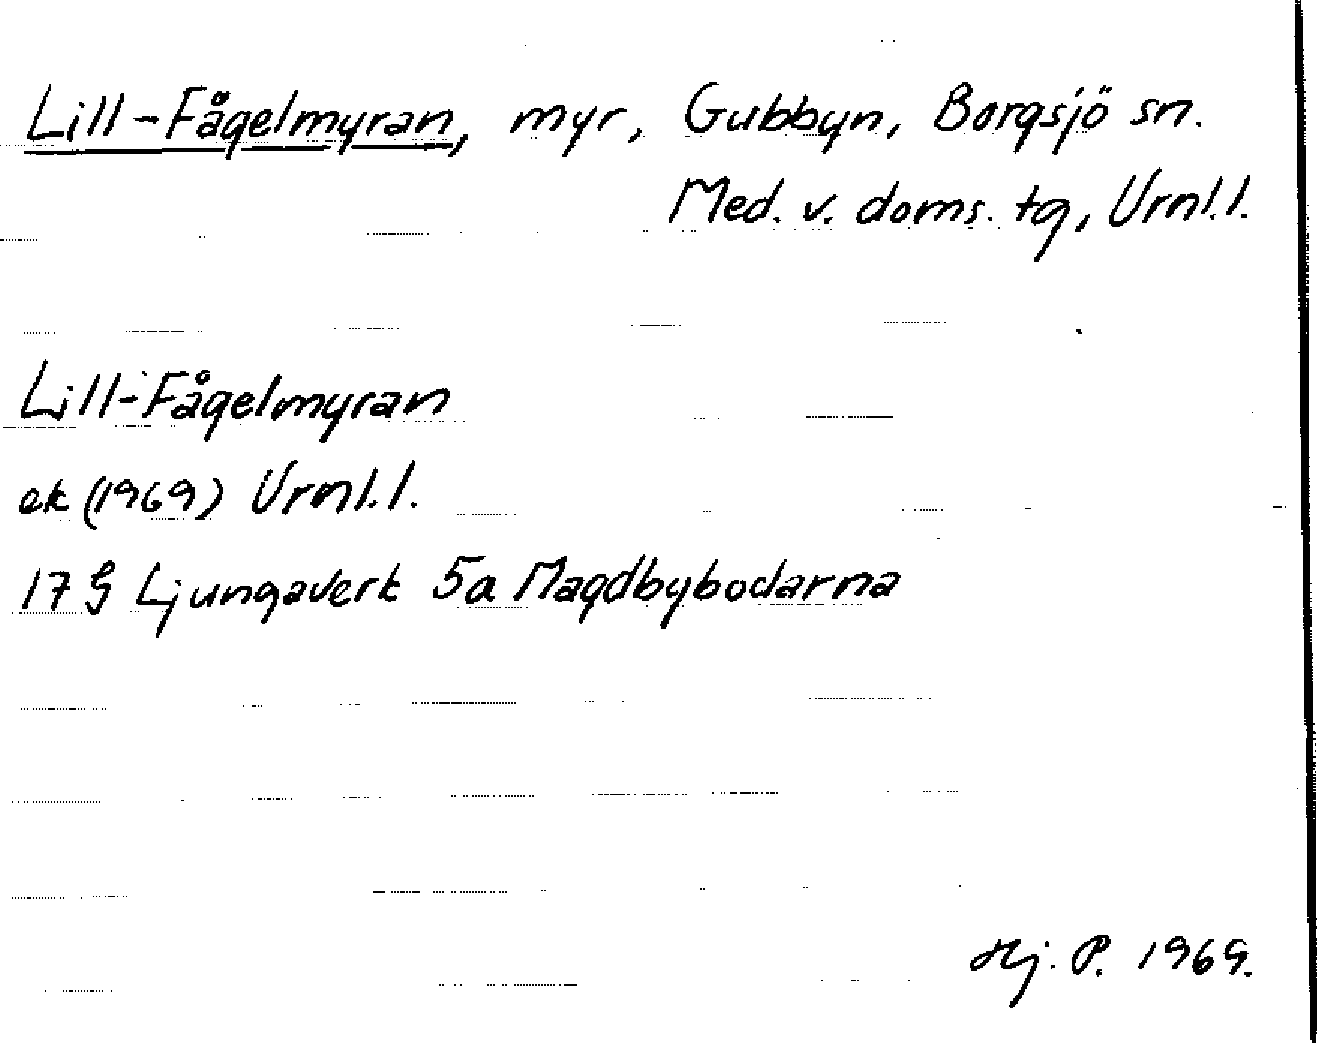 Lill-Fågelmyran, myr, Gubbyn, Borgsjö sn.
Med. v. doms. tg, Urnl.l.
Lill-Fågelmyran
ek (1969) Urnl.l.
17 G Ljungaverk 5a Magdbybodarna
Hj. P. 1969.